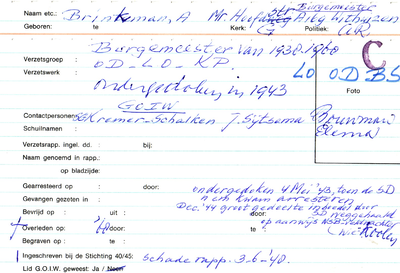 Burgemeester
Naam etc.: Brinkman, A Mr. Uithuizen
Geboren: te Kerk: G Politiek: (A.R.)
Burgemeester van 1938-1960
Verzetsgroep : OD - LO - KP. C
Verzetswerk : LO OD BS
ondergedoken in 1943 Foto
GOIW
Contactpersonen: Kremer-Schalken J. Sijtsema Bouwman
Schuilnaam : Elema
Verzetsrapp. ingel. dd. : bij:
Naam genoemd in rapp.:
op bladzijde:
Gearresteerd op : door: ondergedoken 4 Mei '43, toen de SD
Gevangen gezeten in : hem kwam arresteren
Bevrijd op : uit : Dec. '44 groot gedeelte inboedel door
: door: SD weggehaald
Overleden op: te : op aanwijs NSB
Begraven op : te :
Ingeschreven bij de Stichting 40/45: schade rapp. 3-6-'48.
Lid G.O.I.W. geweest: Ja / Neen